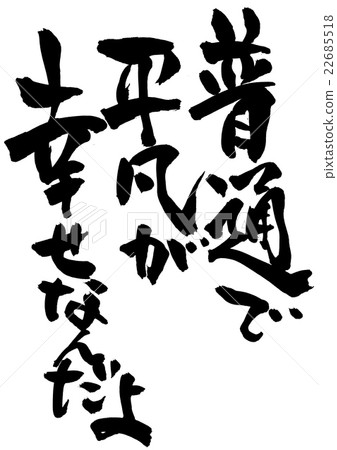 普通で
平凡が
幸せなんだよ
22685518